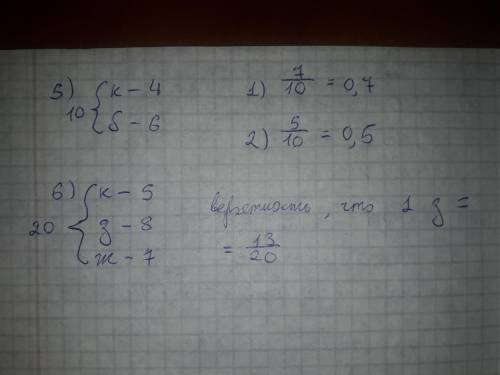 5) 10 { к – 4
б – 6
1) 7/10 = 0,7
2) 5/10 = 0,5
6) 20 { к – 5
з – 8
ж – 7
вероятность, что 1 з =
= 13/20